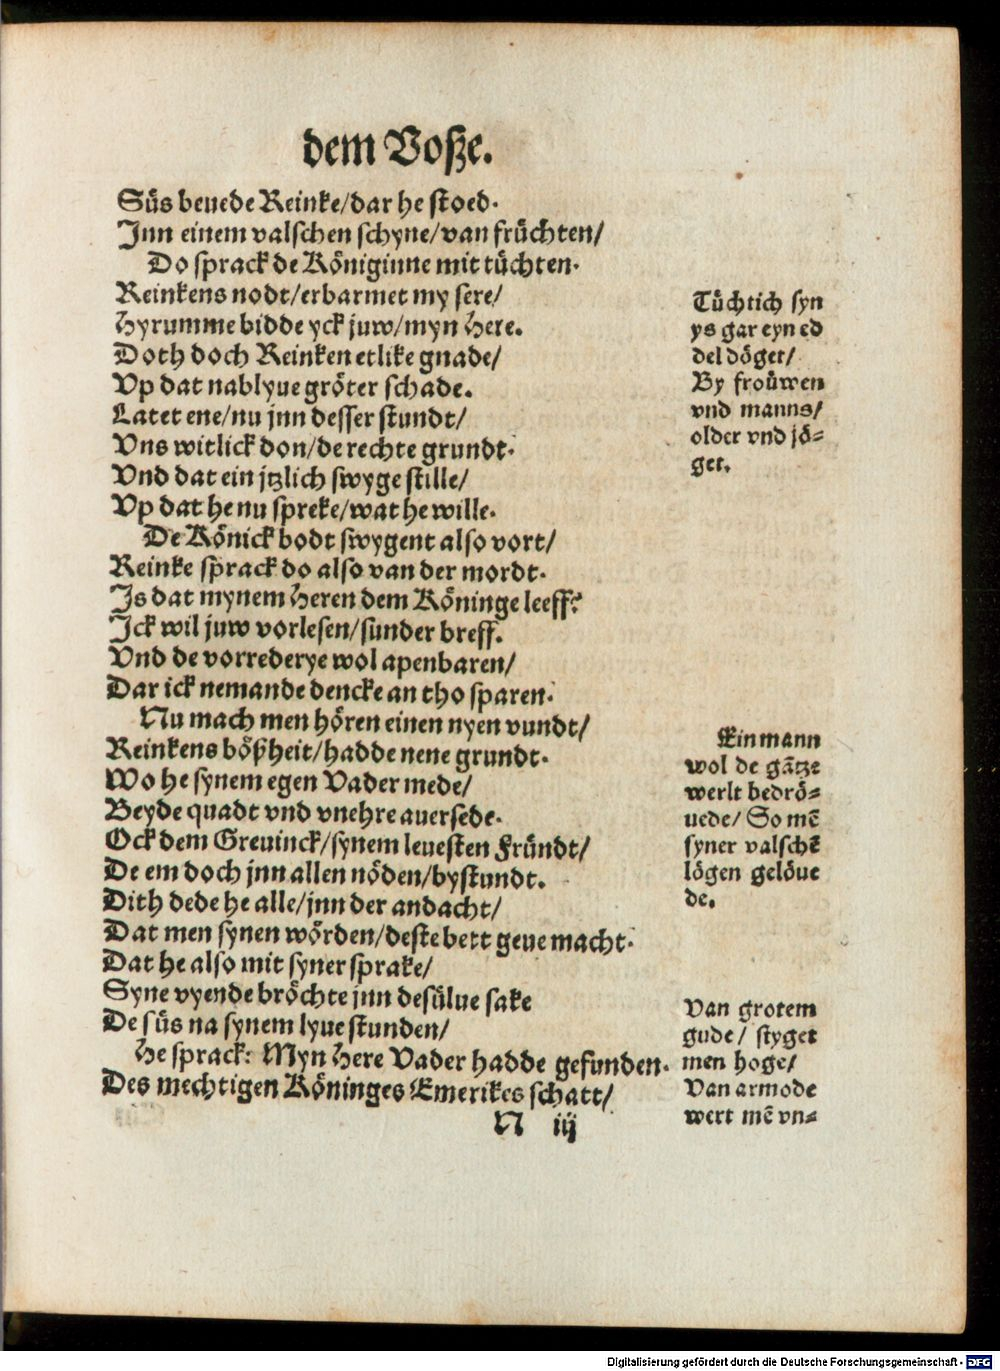 dem Voſze.
Süs beuede Reinke/dar he ſtoed.
Jnn einem valſchen ſchyne/van früchten/
Do ſprack de Königinne mit tüchten.
Reinkens nodt/erbarmet my ſere/
Hyrumme bidde yck juw/myn Here.
Doth doch Reinken etlike gnade/
Vp dat nablyue gröter ſchade.
Latet ene/nu jnn deſſer ſtundt/
Vns witlick don/de rechte grundt.
Vnd dat ein jtzlich ſwyge ſtille/
Vp dat he nu ſpreke/wat he wille.
De Könick bodt ſwygent alſo vort/
Reinke ſprack do alſo van der mordt.
Js dat mynem Heren dem Köninge leeff?
Jck wil juw vorleſen/ſunder breff.
Vnd de vorrederye wol apenbaren/
Dar ick nemande dencke an tho ſparen.
Nu mach men hören einen nyen vundt/
Reinkens bößheit/hadde nene grundt.
Wo he ſynem egen Vader mede/
Beyde quadt vnd vnehre auerſede.
Ock dem Greuinck/ſynem leueſten Fründt/
De em doch jnn allen nöden/byſtundt.
Dith dede he alle/jnn der andacht/
Dat men ſynen wörden/deſte bett geue macht.
Dat he alſo mit ſyner ſprake/
Syne vyende bröchte jnn deſülue ſake
De ſüs na ſynem lyue ſtunden/
He ſprack: Myn Here Vader hadde gefunden.
Des mechtigen Köninges Emerikes ſchatt/
N iij
Tüchtich ſyn
ys gar eyn ed
del döget/
By froüwen
vnd manns/
older vnd jö⸗
get.
Ein mann
wol de gātze
werlt bedrö⸗
uede/ So mē
ſyner valſchē
lögen gelöue
de.
Van grotem
gude/ ſtyget
men hoge/
Van armode
wert mē vn⸗
Digitalisierung gefördert durch die Deutsche Forschungsgemeinschaft - DFG